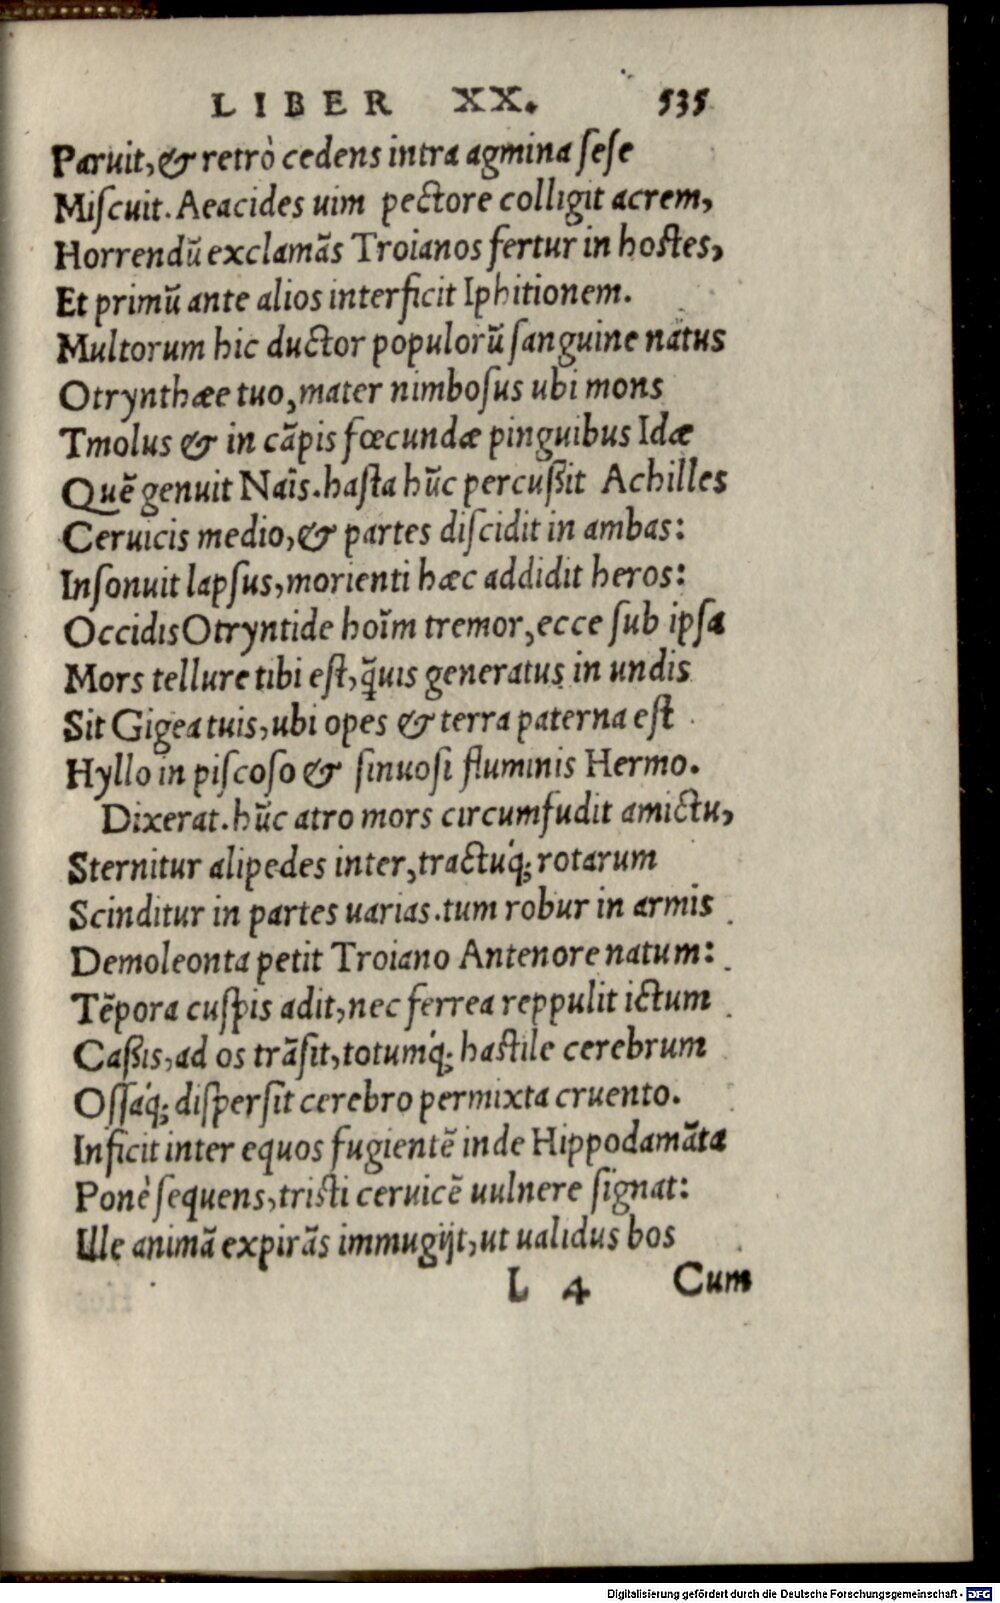 LIBER XX. 535
Paruit, & retrò cedens intra agmina ſeſe
Miſcuit. Aeacides uim pectore colligit acrem,
Horrendũ exclamãs Troianos fertur in hoſtes,
Et primũ ante alios interficit Iphitionem.
Multorum hic ductor populorũ ſanguine natus
Otrynthæe tuo, mater nimboſus ubi mons
Tmolus & in cãpis fœcundæ pinguibus Idæ
Quẽ genuit Naîs. haſta hũc percußit Achilles
Ceruicis medio, & partes diſcidit in ambas:
Inſonuit lapſus, morienti hæc addidit heros:
Occidis Otryntide hoĩm tremor, ecce ſub ipſa
Mors tellure tibi eſt, q̃uis generatus in undis
Sit Gigea tuis, ubi opes & terra paterna eſt
Hyllo in piſcoſo & ſinuoſi fluminis Hermo.
Dixerat. hũc atro mors circumfudit amictu,
Sternitur alipedes inter, tractuq́; rotarum
Scinditur in partes uarias. tum robur in armis
Demoleonta petit Troiano Antenore natum:
Tẽpora cuſpis adit, nec ferrea reppulit ictum
Caßis, ad os trãſit, totumq́; haſtile cerebrum
Oſſaq́; diſperſit cerebro permixta cruento.
Inficit inter equos fugientẽ inde Hippodamãta
Ponè ſequens, triſti ceruicẽ uulnere ſignat:
Ille animã expirãs immugijt, ut ualidus bos
L 4 Cum
Digitalisierung gefördert durch die Deutsche Forschungsgemeinschaft - DFG